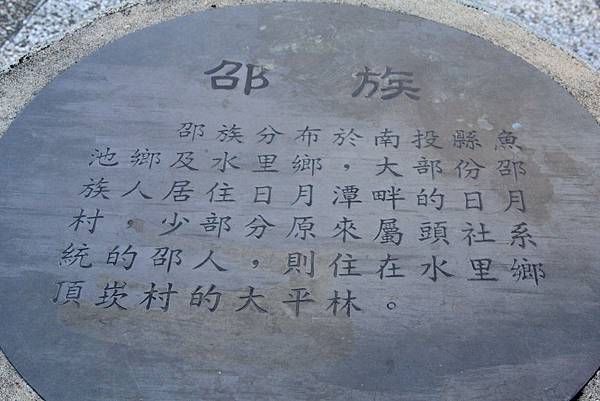 邵族
邵族分布於南投縣魚
池鄉及水里鄉，大部份邵
族人居住日月潭畔的日月
村，少部分原來屬頭社系
統的邵人，則住在水里鄉
頂崁村的大平林。